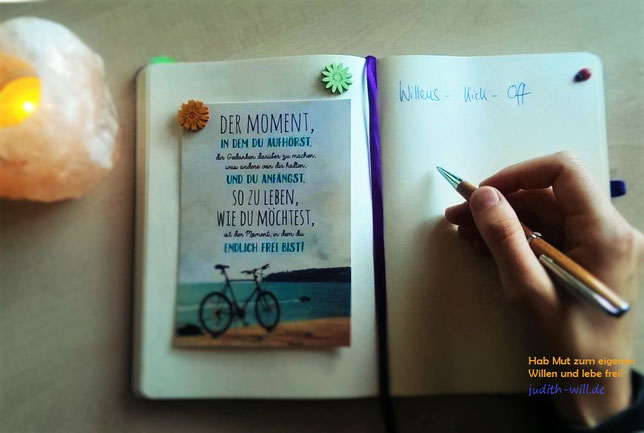 DER MOMENT,
IN DEM DU AUFHÖRST,
dir Gedanken darüber zu machen,
was andere von dir halten,
UND DU ANFÄNGST,
SO ZU LEBEN,
WIE DU MÖCHTEST,
ist der Moment, in dem du
ENDLICH FREI BIST!
Willens - Kick - Off
Hab Mut zum eigenen
Willen und lebe frei!
judith-will.de